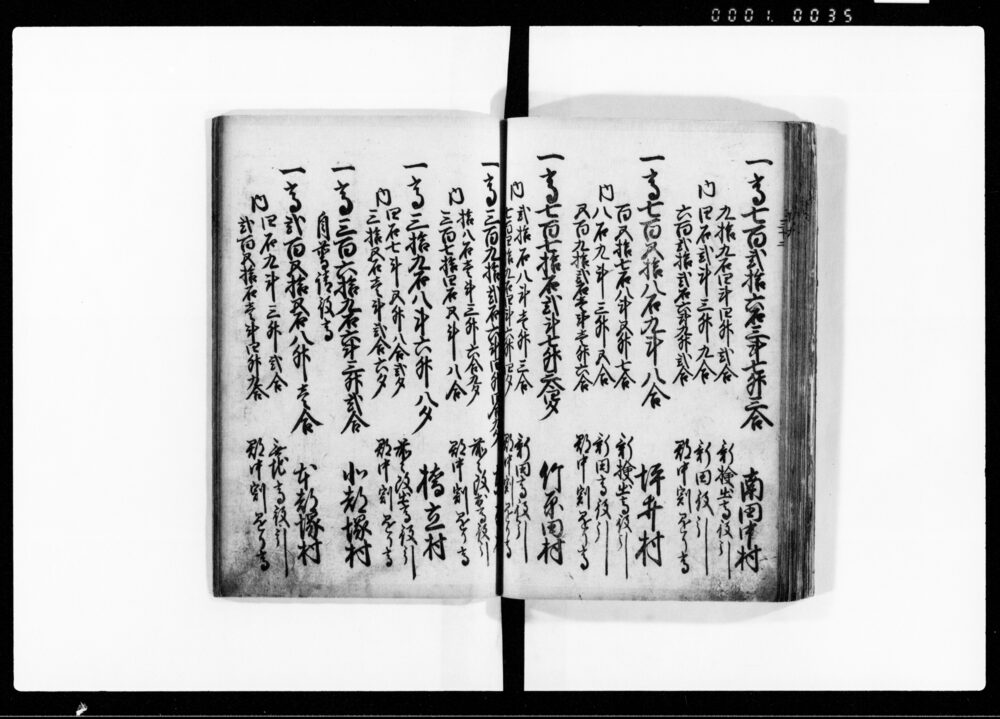 0001 0035
一高七百弐拾六石三斗七升三合 南田中村
内 九拾九石四斗四升弐合 新検出高役引
四石弐斗三升九合 新田役引
六百弐拾弐石六斗九升弐合 郡中割　高
一高七百五拾八石九斗八合 坪井村
百五拾七石八斗五升七合 新検出高役引
内 八石九斗三升五合 新田役引
五百九拾弐石壱斗壱升六合 郡中割　高
一高七百七拾石弐斗七升 竹原田村
内 弐拾石八斗壱升三合 新田高役引
郡中割　高
一高三百九拾弐石六斗四升
内 拾八石壱斗三升六合九夕 役引
三百七拾四石五斗八合 郡中割　高
一高三拾九石八斗六升八夕 橋立村
内 四石七斗五升八合弐夕 高役引
三拾五石壱斗弐合六夕 郡中割　高
一高三百六拾九石六斗三升弐合 小都塚村
自普請役高
一高弐百五拾五石八升壱合 本都塚村
内 四石九斗三升弐合 高役引
弐百五拾石壱斗四升九合 郡中割　高